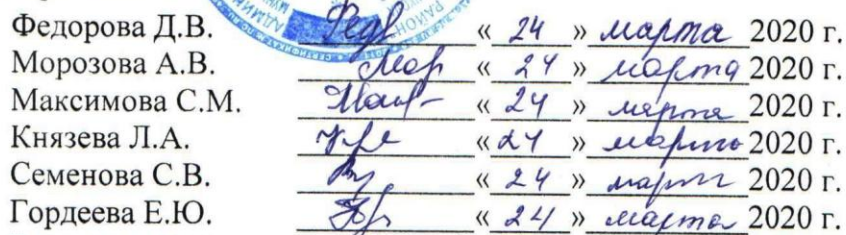 Федорова Д.В. « 24 » марта 2020 г.
Морозова А.В. « 24 » марта 2020 г.
Максимова С.М. « 24 » марта 2020 г.
Князева Л.А. « 24 » марта 2020 г.
Семенова С.В. « 24 » марта 2020 г.
Гордеева Е.Ю. « 24 » марта 2020 г.